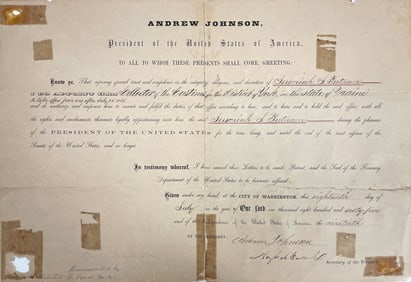 ANDREW JOHNSON,
President of the United States of America,
TO ALL TO WHOM THESE PRESENTS SHALL COME, GREETING:
Know ye, That reposing special trust and confidence in the integrity, diligence, and discretion of Jeremiah S. Putnam
I DO APPOINT HIM Collector of the Customs for the District of York, in the State of Maine
and do authorize and empower him to execute and fulfil the duties of that office according to law, and to have and to hold the said office, with all
the rights and emoluments thereunto legally appertaining unto him, the said Jeremiah S. Putnam during the pleasure
of the PRESIDENT OF THE UNITED STATES for the time being, and until the end of the next session of the
Senate of the United States, and no longer.
In testimony whereof, I have caused these Letters to be made Patent, and the Seal of the Treasury
Department of the United States to be hereunto affixed.
Given under my hand, at the CITY OF WASHINGTON, this eighteenth day of
July in the year of Our Lord one thousand eight hundred and sixty-five
and of the Independence of the United States of America, the ninetieth
BY THE PRESIDENT:
Andrew Johnson
Secretary of the Treasury